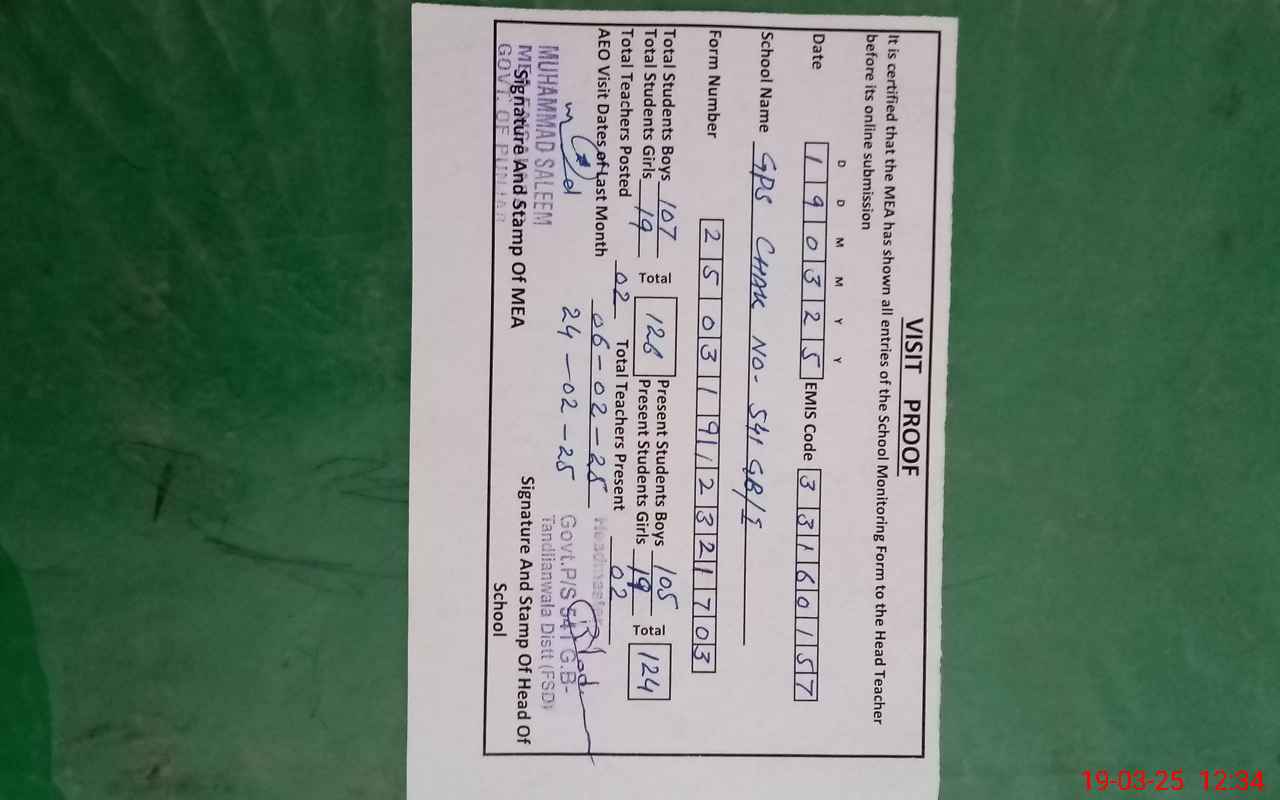 VISIT PROOF
It is certified that the MEA has shown all entries of the School Monitoring Form to the Head Teacher
before its online submission
D D M M Y Y
Date 1 9 0 3 2 5 EMIS Code 3 3 1 6 0 1 5 7
School Name GPS CHAK NO- 541 GB/I
Form Number 2 5 0 3 1 9 1 2 3 2 1 7 0 3
Total Students Boys 107 Total 126 Present Students Boys 105 Total 124
Total Students Girls 19 Present Students Girls 19
Total Teachers Posted 02 Total Teachers Present 02
AEO Visit Dates of Last Month 06-02-25
24-02-25
Headmaster
Govt.P/S 541 G.B-
Tandlianwala Distt (FSD)
MUHAMMAD SALEEM
GOVT. OF PUNJAB
Signature And Stamp Of MEA
Signature And Stamp Of Head Of
School
19-03-25 12:34